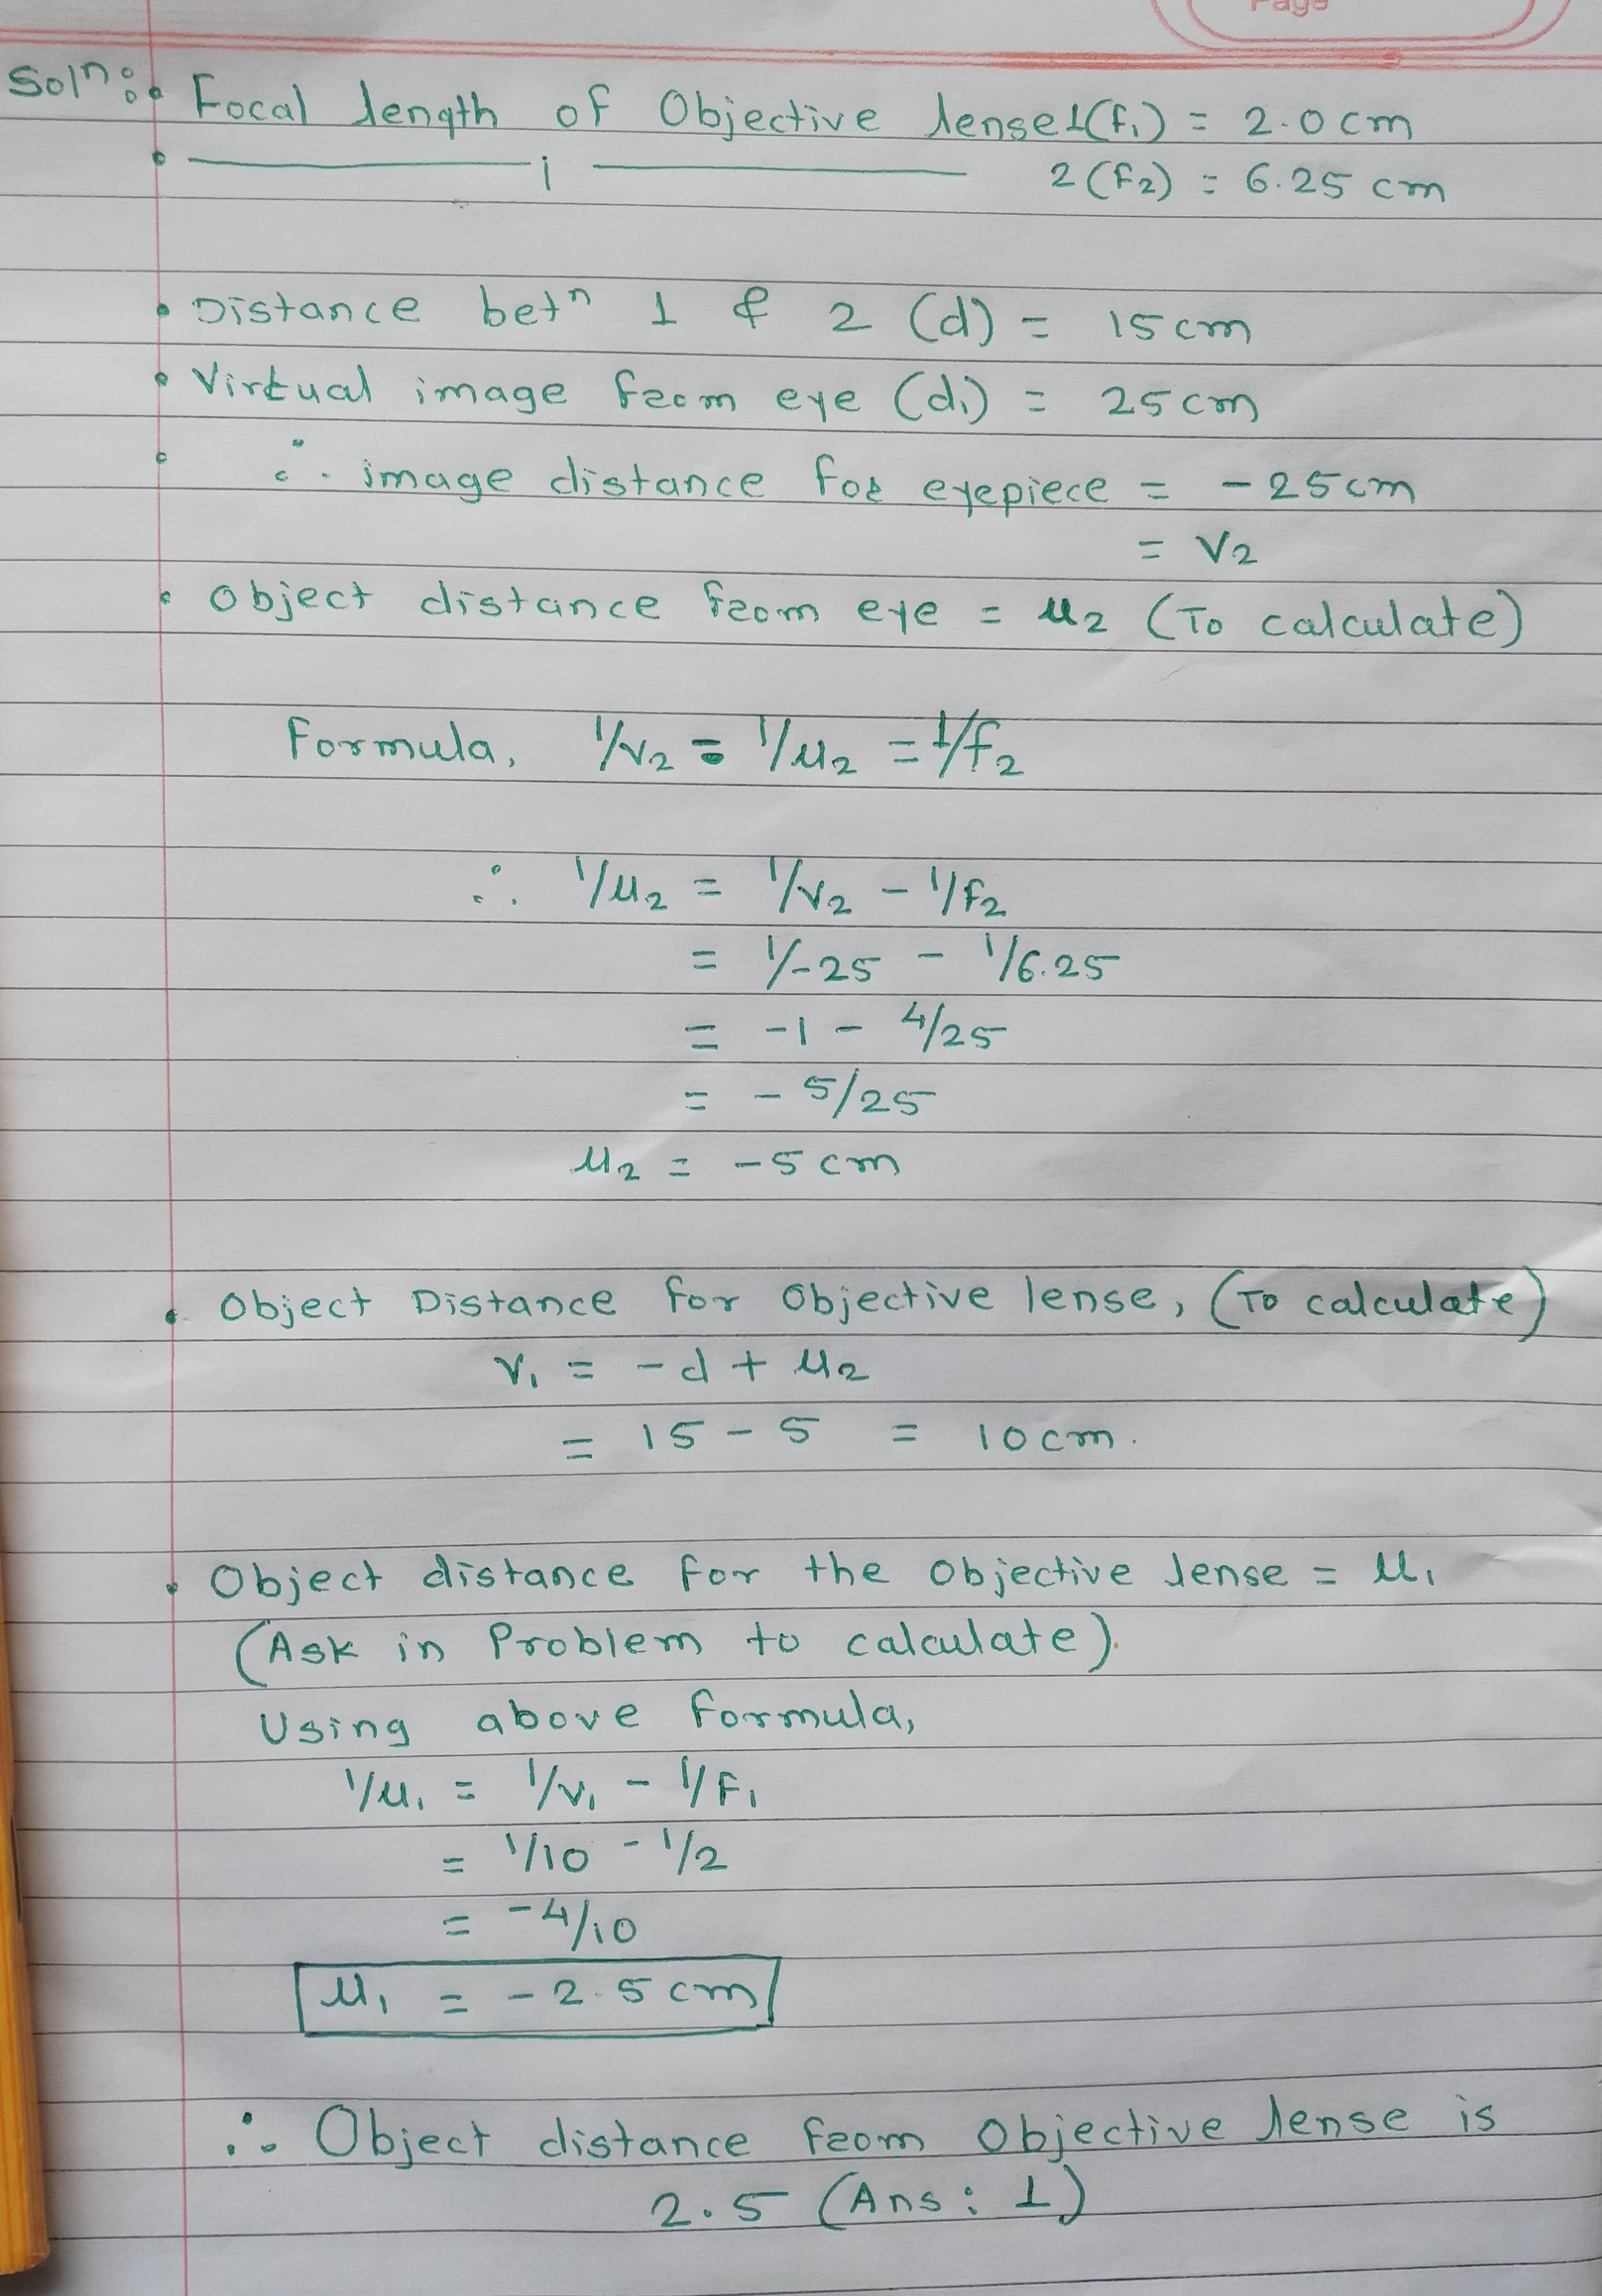 Page
Solⁿ: • Focal length of Objective lense 1(f₁) = 2.0 cm
• ——— i ——— 2 (f₂) = 6.25 cm
• Distance betⁿ 1 & 2 (d) = 15 cm
• Virtual image from eye (d₁) = 25 cm
• ∴ image distance for eyepiece = -25 cm
= V₂
• Object distance from eye = u₂ (To calculate)
Formula, 1/v₂ = 1/u₂ = 1/f₂
∴ 1/u₂ = 1/v₂ - 1/f₂
= 1/-25 - 1/6.25
= -1 - 4/25
= - 5/25
u₂ = -5 cm
• Object Distance for Objective lense, (To calculate)
v₁ = -d + u₂
= 15 - 5 = 10 cm.
• Object distance for the objective lense = u₁
(Ask in Problem to calculate).
Using above formula,
1/u₁ = 1/v₁ - 1/F₁
= 1/10 - 1/2
= -4/10
u₁ = -2.5 cm
∴ Object distance from Objective lense is
2.5 (Ans: 1)